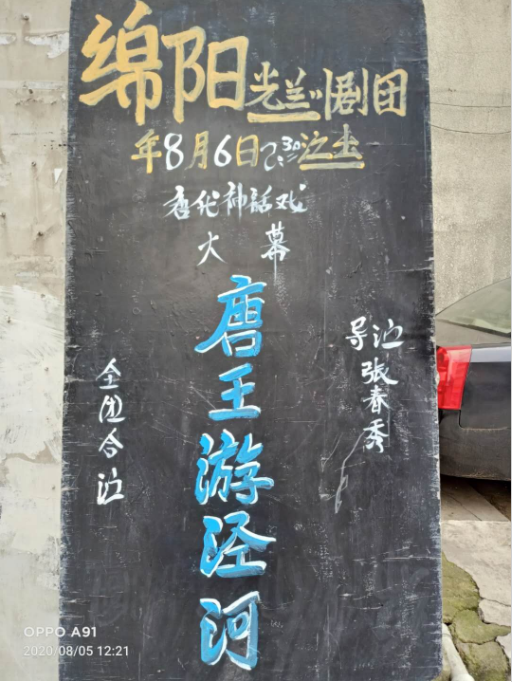 绵阳光兰川剧团
年8月6日2:30演出
唐代神話戏
大幕
导演张春秀
唐王游泾河
全团合演
OPPO A91
2020/08/05 12:21